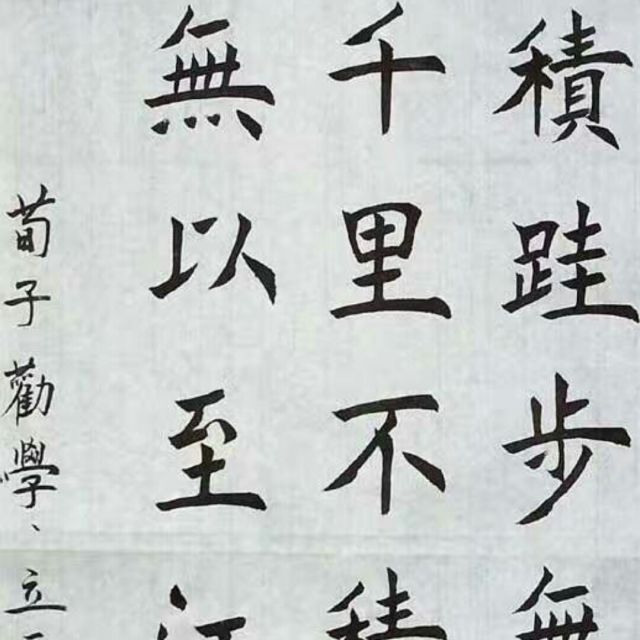 積跬步無
千里不積
無以至江
荀子勸學、立